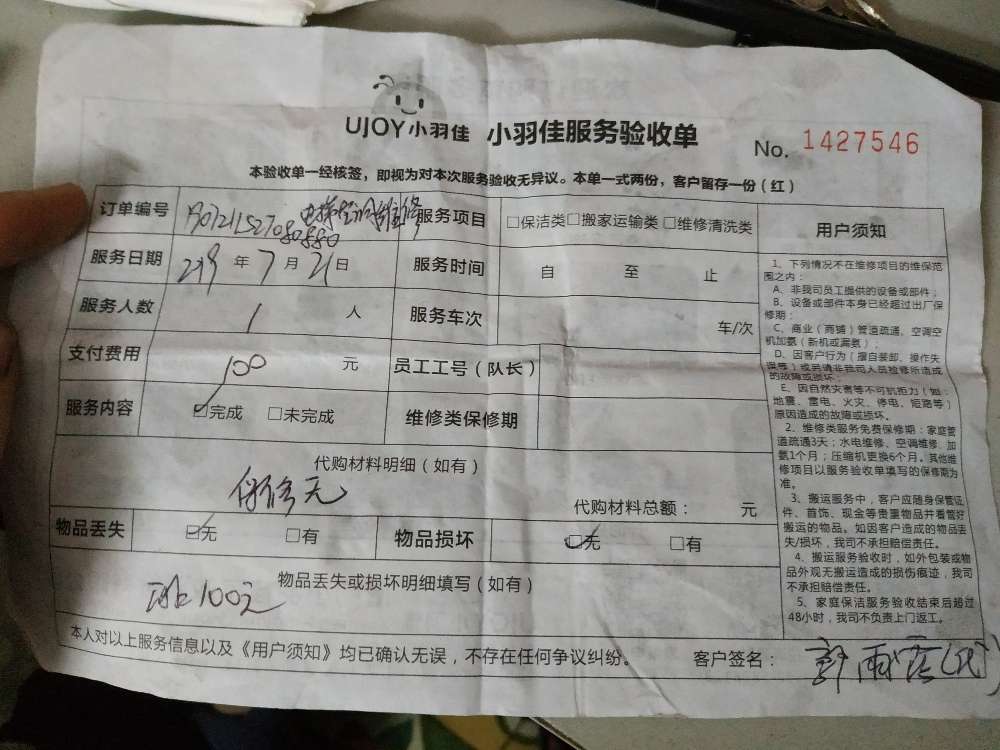 UJOY小羽佳 小羽佳服务验收单
No. 1427546
本验收单一经核签，即视为对本次服务验收无异议。本单一式两份，客户留存一份（红）
订单编号
服务项目 □保洁类□搬家运输类 □维修清洗类
服务日期 年 7 月 21 日
服务时间 自 至 止
服务人数 1 人
服务车次 车/次
支付费用 100 元
员工工号（队长）
服务内容 ☑完成 □未完成
维修类保修期
代购材料明细（如有）
保修无
代购材料总额： 元
物品丢失 ☑无 □有
物品损坏 ☑无 □有
物品丢失或损坏明细填写（如有）
100元
本人对以上服务信息以及《用户须知》均已确认无误，不存在任何争议纠纷。
客户签名：
用户须知
1、下列情况不在维修项目的维保范
围之内：
A、非我司员工提供的设备或部件；
B、设备或部件本身已经超过出厂保
修期；
C、商业（商铺）管道疏通、空调空
机加氨（新机或漏氨）；
D、因客户行为（擅自装卸、操作失
误等）或另请非我司人员检修所造成
的故障或损坏；
E、因自然灾害等不可抗拒力（如：
地震、雷电、火灾、停电、短路等）
原因造成的故障或损坏。
2、维修类服务免费保修期：家庭管
道疏通3天；水电维修、空调维修、加
氨1个月；压缩机更换6个月。其他维
修项目以服务验收单填写的保修期为
准。
3、搬运服务中，客户应随身保管证
件、首饰、现金等贵重物品并看管好
搬运的物品。如因客户造成的物品丢
失/损坏，我司不承担赔偿责任。
4、搬运服务验收时，如外包装或物
品外观无搬运造成的损伤痕迹，我司
不承担赔偿责任。
5、家庭保洁服务验收结束后超过
48小时，我司不负责上门返工。